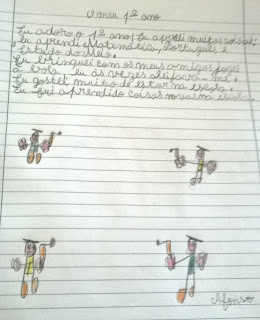 O meu 1º ano
Eu adoro o 1º ano, Eu aprendi muitas coisas;
Eu aprendi Matemática, Português e
Estudo do Meio.
Eu brinquei com os meus amigos joguei
a bola eu às vezes
Eu gostei muito de estar na escola.
Eu fui aprendido coisas novas na escola
Afonso